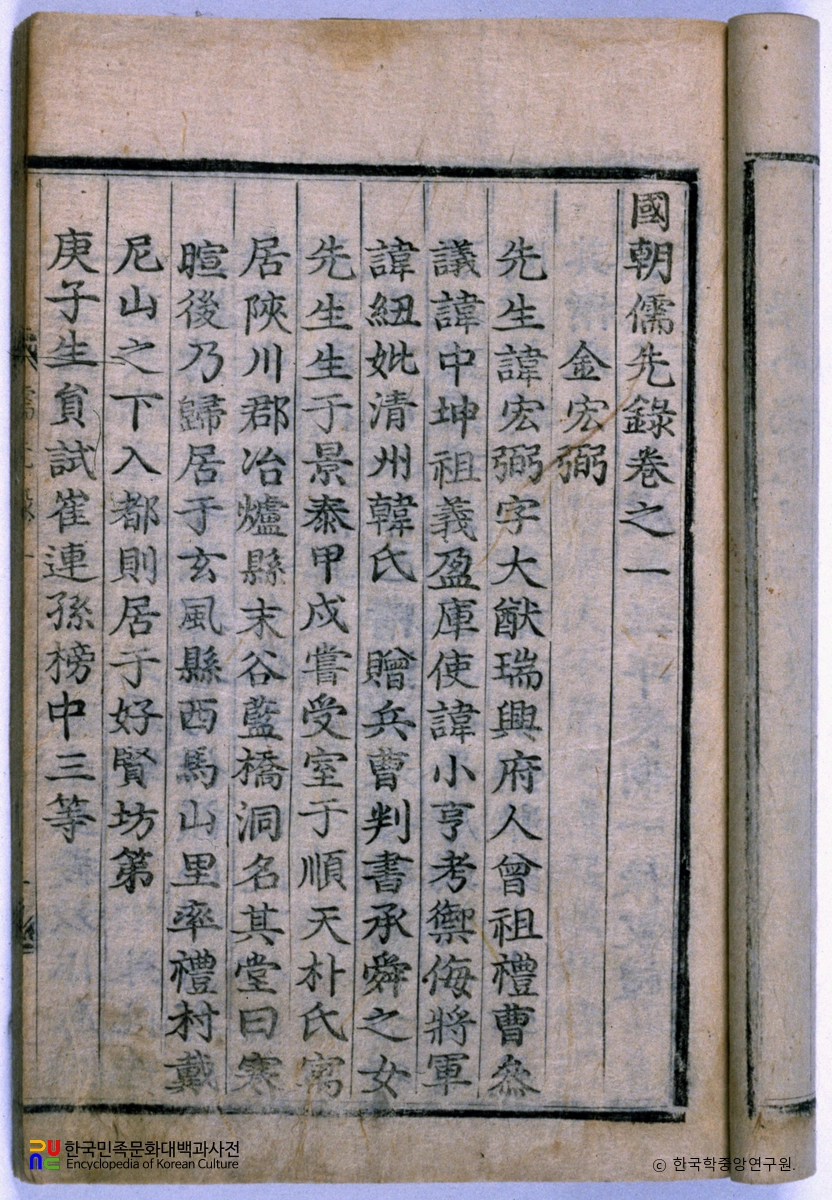 國朝儒先錄卷之一
金宏弼
先生諱宏弼字大猷瑞興府人曾祖禮曹叅
議諱中坤祖義盈庫使諱小亨考禦侮將軍
諱紐妣清州韓氏 贈兵曹判書承舜之女
先生生于景泰甲戌嘗受室于順天朴氏寓
居陜川郡冶爐縣末谷藍橋洞名其堂曰寒
暄後乃歸居于玄風縣西馬山里率禮村戴
尼山之下入都則居于好賢坊第
庚子生員試崔連孫榜中三等
한국민족문화대백과사전
Encyclopedia of Korean Culture
© 한국학중앙연구원.